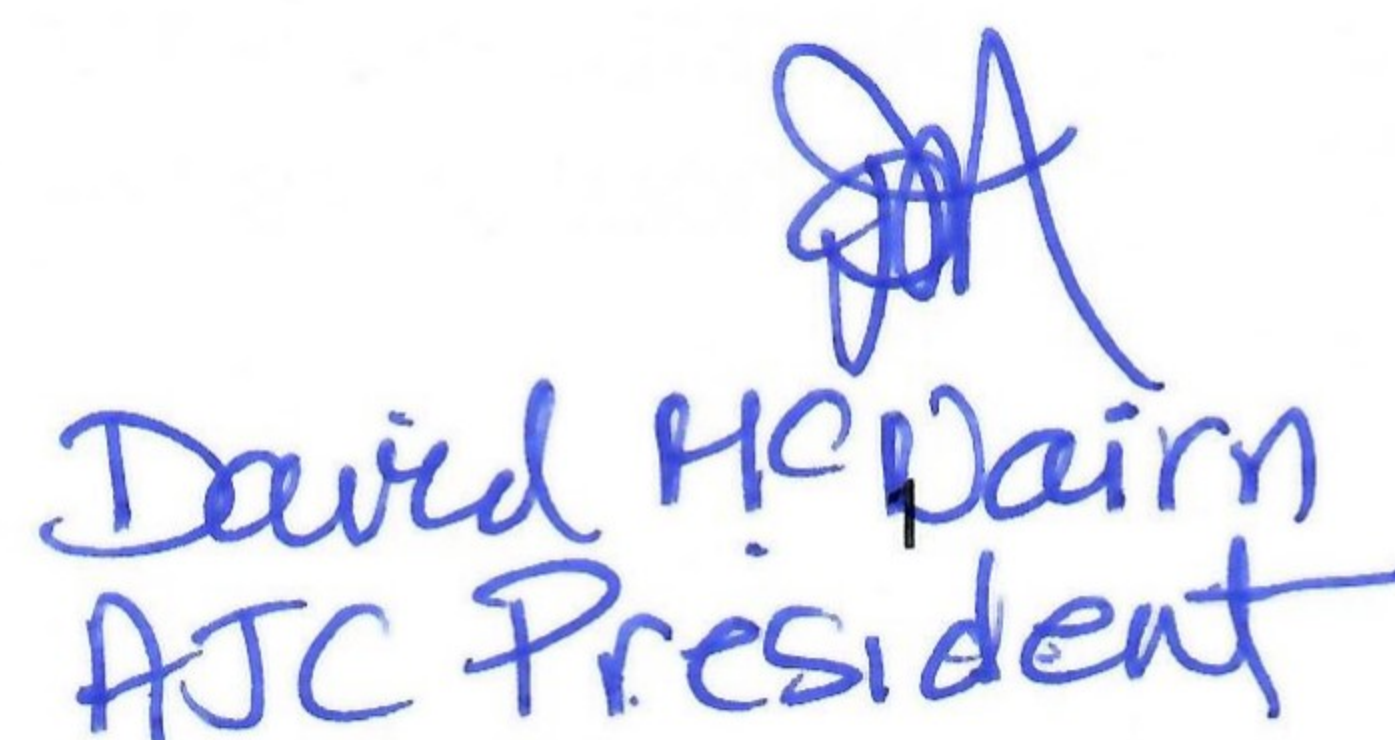 David McNairn
1
AJC President